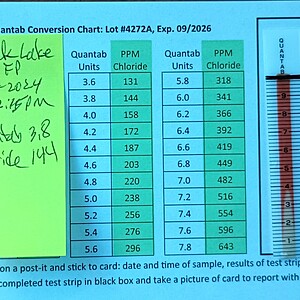 uantab Conversion Chart: Lot #4272A, Exp. 09/2026
Lake
EP
2024
PM
3.8
ide 144
Quantab Units PPM Chloride
3.6 131
3.8 144
4.0 158
4.2 172
4.4 187
4.6 203
4.8 220
5.0 238
5.2 256
5.4 276
5.6 296
Quantab Units PPM Chloride
5.8 318
6.0 341
6.2 366
6.4 392
6.6 419
6.8 449
7.0 482
7.2 516
7.4 554
7.6 596
7.8 643
QUANTAB
9
8
7
6
5
4
3
2
1
on a post-it and stick to card: date and time of sample, results of test strip
completed test strip in black box and take a picture of card to report with